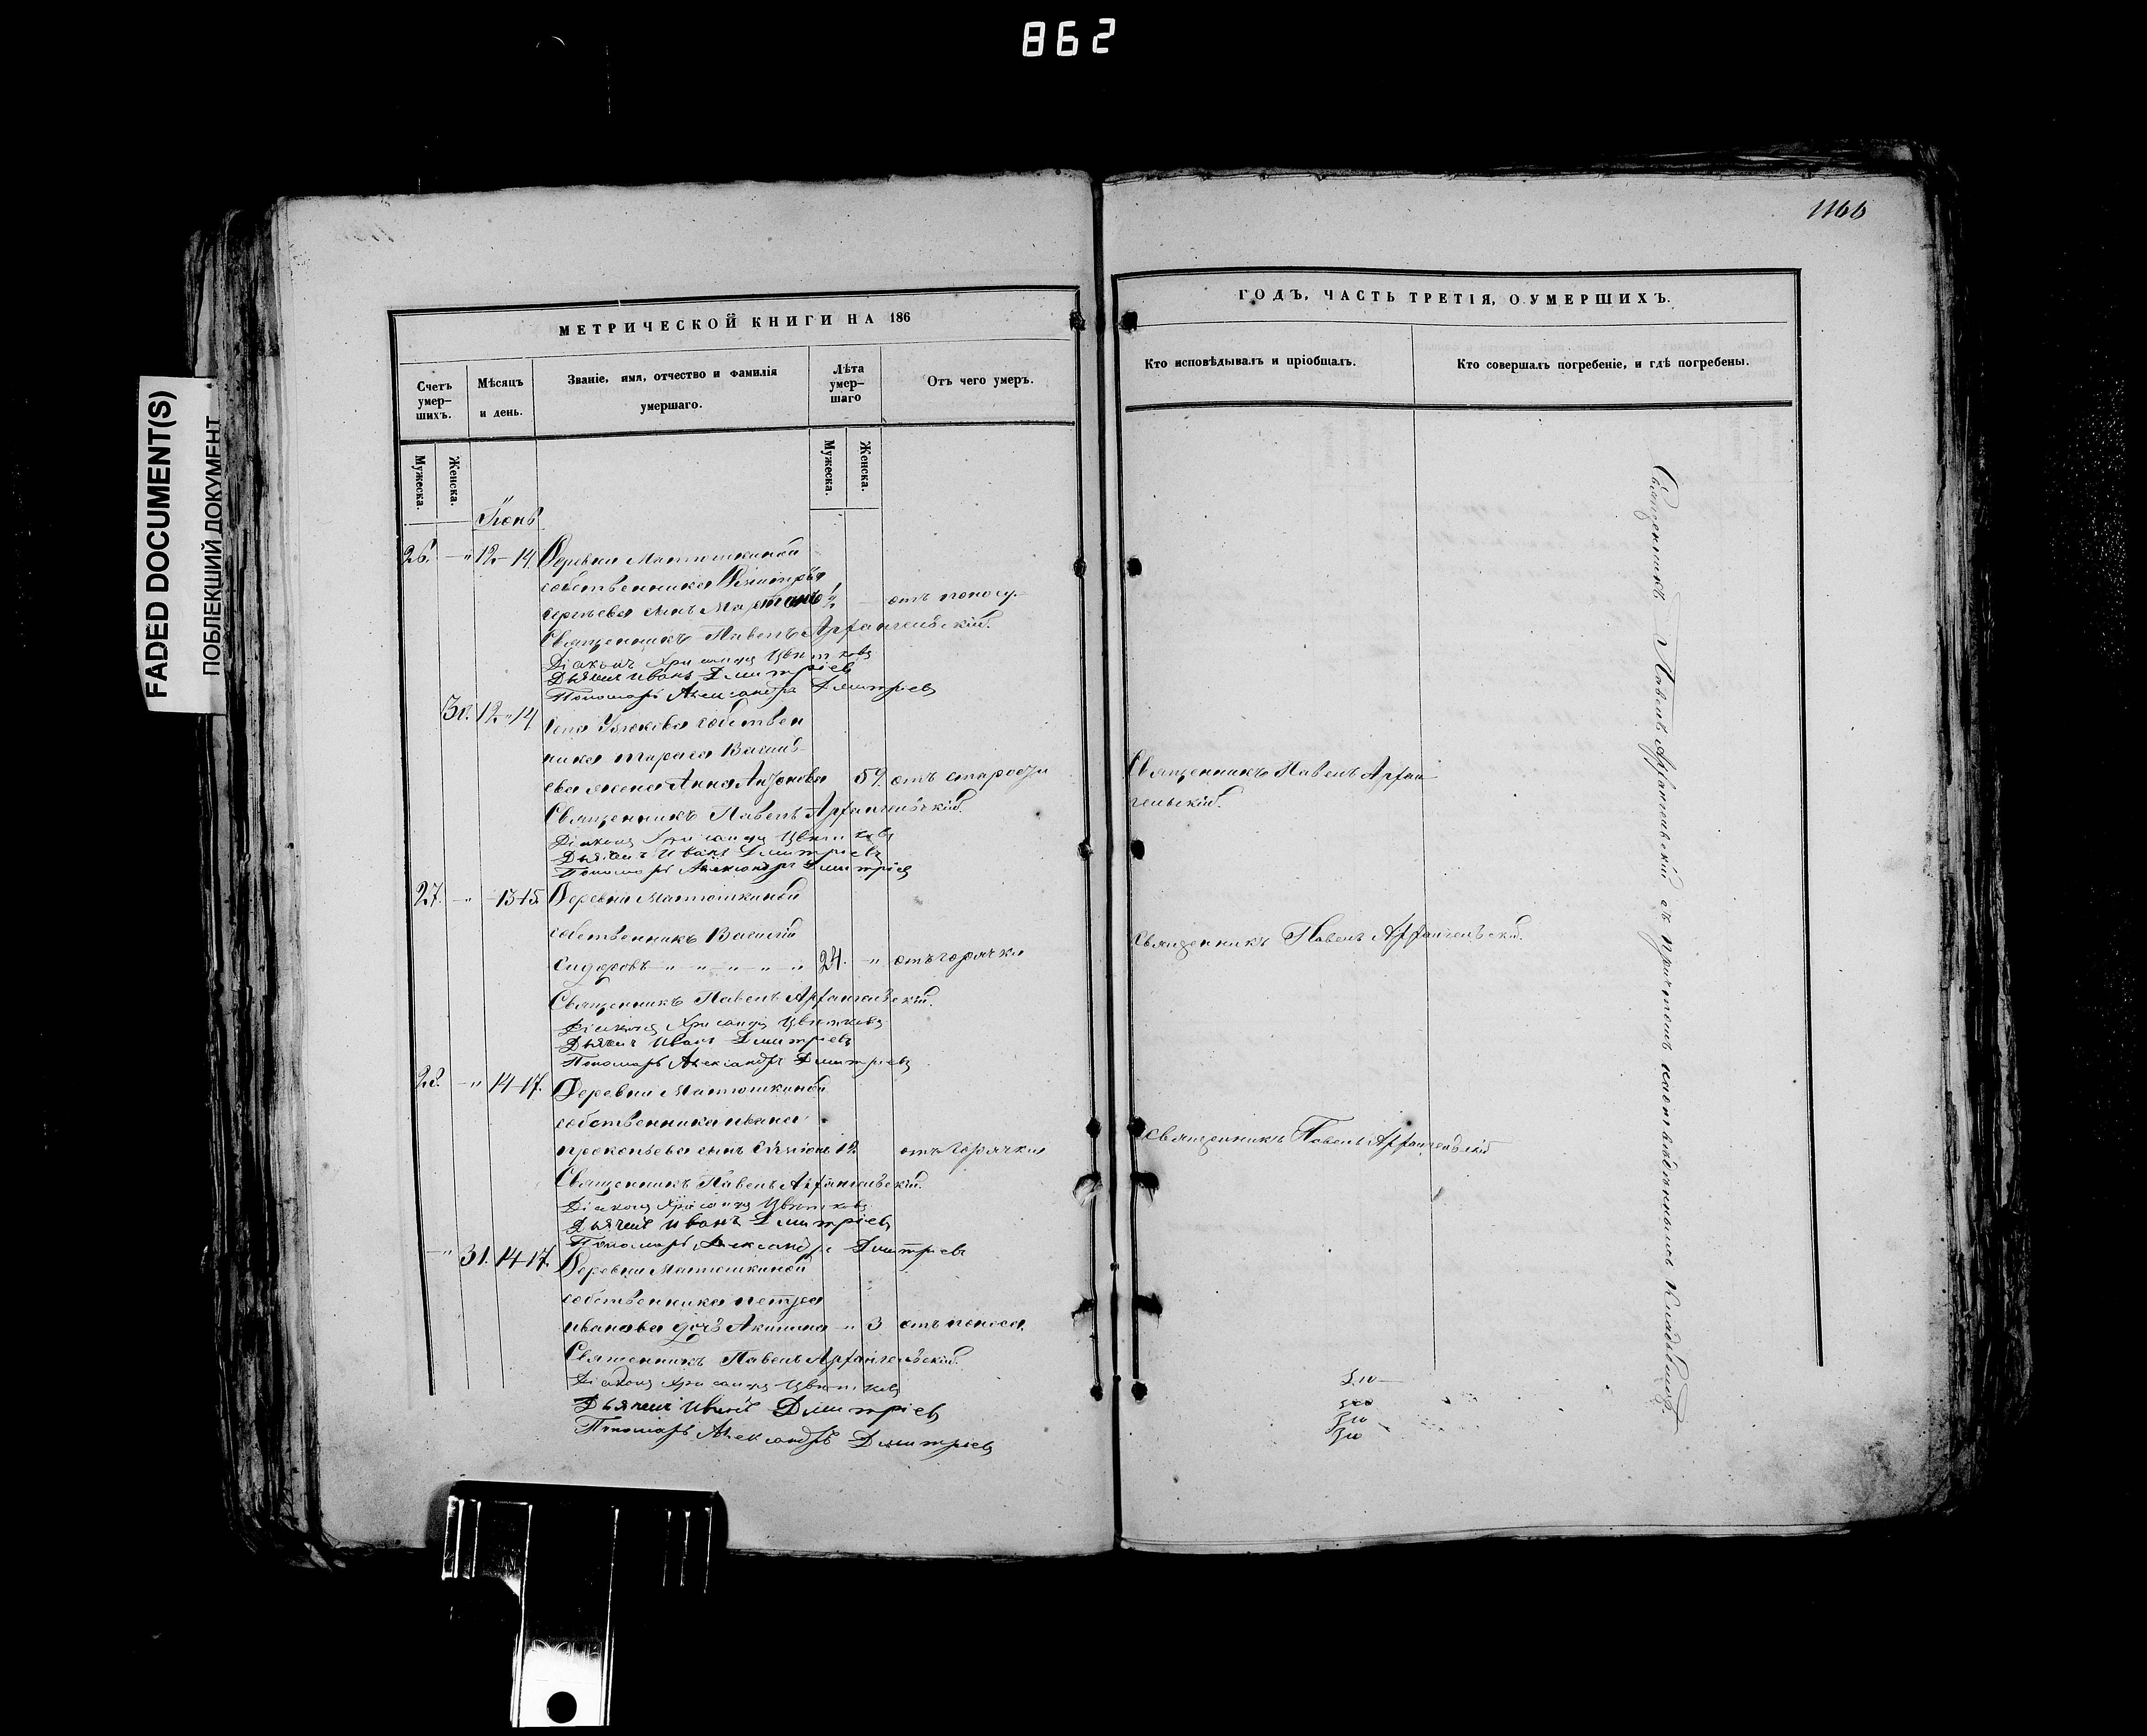 862
1166
FADED DOCUMENT(S)
ПОБЛЕКШИЙ ДОКУМЕНТ
МЕТРИЧЕСКОЙ КНИГИ НА 186
Счетъ умер-шихъ.
Мѣсяцъ и день.
Званіе, имя, отчество и фамилія умершаго.
Лѣта умер-шаго
Отъ чего умеръ.
Мужеска.
Женска.
Мужеска.
Женска.
Іюнь
26. — " 12–14. Деревни Матюшкиной
собственника Димитрія
Сергѣева сынъ отъ поносу.
Священникъ Павелъ Архангельскій.
Діаконъ Хрисанфъ Цвѣтковъ
Дьячекъ Иванъ Дмитріевъ
Пономарь Александръ Дмитріевъ
30. 12–14 Села собствен
ника Тараса Василь-
ева жена Анна 59. отъ старости
Священникъ Павелъ Архангельскій.
Діаконъ Хрисанфъ Цвѣтковъ
Дьячекъ Иванъ Дмитріевъ
Пономарь Александръ Дмитріевъ
27. — " 13–15. Деревни Матюшкиной
собственникъ Василій
Сидоровъ — " " " " " 24. — " отъ горячки
Священникъ Павелъ Архангельскій.
Діаконъ Хрисанфъ Цвѣтковъ
Дьячекъ Иванъ Дмитріевъ
Пономарь Александръ Дмитріевъ
28. — " 14–17. Деревни Матюшкиной
собственника Ивана
Прокопьева сынъ отъ горячки
Священникъ Павелъ Архангельскій.
Діаконъ Хрисанфъ Цвѣтковъ
Дьячекъ Иванъ Дмитріевъ
Пономарь Александръ Дмитріевъ
— " 31. 14–17. Деревни Матюшкиной
собственника Петра
Иванова дочь Акилина — " 3 отъ поноса.
Священникъ Павелъ Архангельскій.
Діаконъ Хрисанфъ Цвѣтковъ
Дьячекъ Иванъ Дмитріевъ
Пономарь Александръ Дмитріевъ
ГОДЪ, ЧАСТЬ ТРЕТІЯ, О УМЕРШИХЪ.
Кто исповѣдывалъ и пріобщалъ.
Кто совершалъ погребеніе, и гдѣ погребены.
Священникъ Павелъ Архан-
гельскій.
Священникъ Павелъ Архангельскій.
Священникъ Павелъ Архангельскій
Священникъ Павелъ Архангельскій съ причтомъ на кладбищѣ.